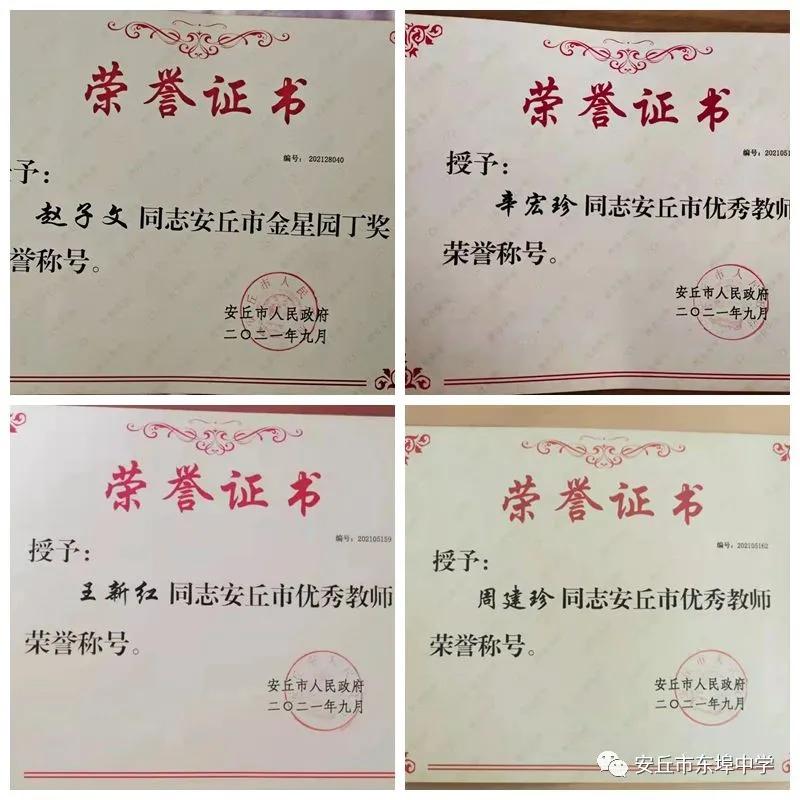 荣誉证书
编号：202128040
予：
赵子文 同志安丘市金星园丁奖
誉称号。
安丘市人民政府
二〇二一年九月
荣誉证书
编号：2021051
授予：
辛宏珍 同志安丘市优秀教师
荣誉称号。
安丘市人民政府
二〇二一年九月
荣誉证书
编号：202105159
授予：
王新红 同志安丘市优秀教师
荣誉称号。
安丘市人民政府
二〇二一年九月
荣誉证书
编号：202105162
授予：
周建珍 同志安丘市优秀教师
荣誉称号。
安丘市人民政府
二〇二一年九月
安丘市东埠中学